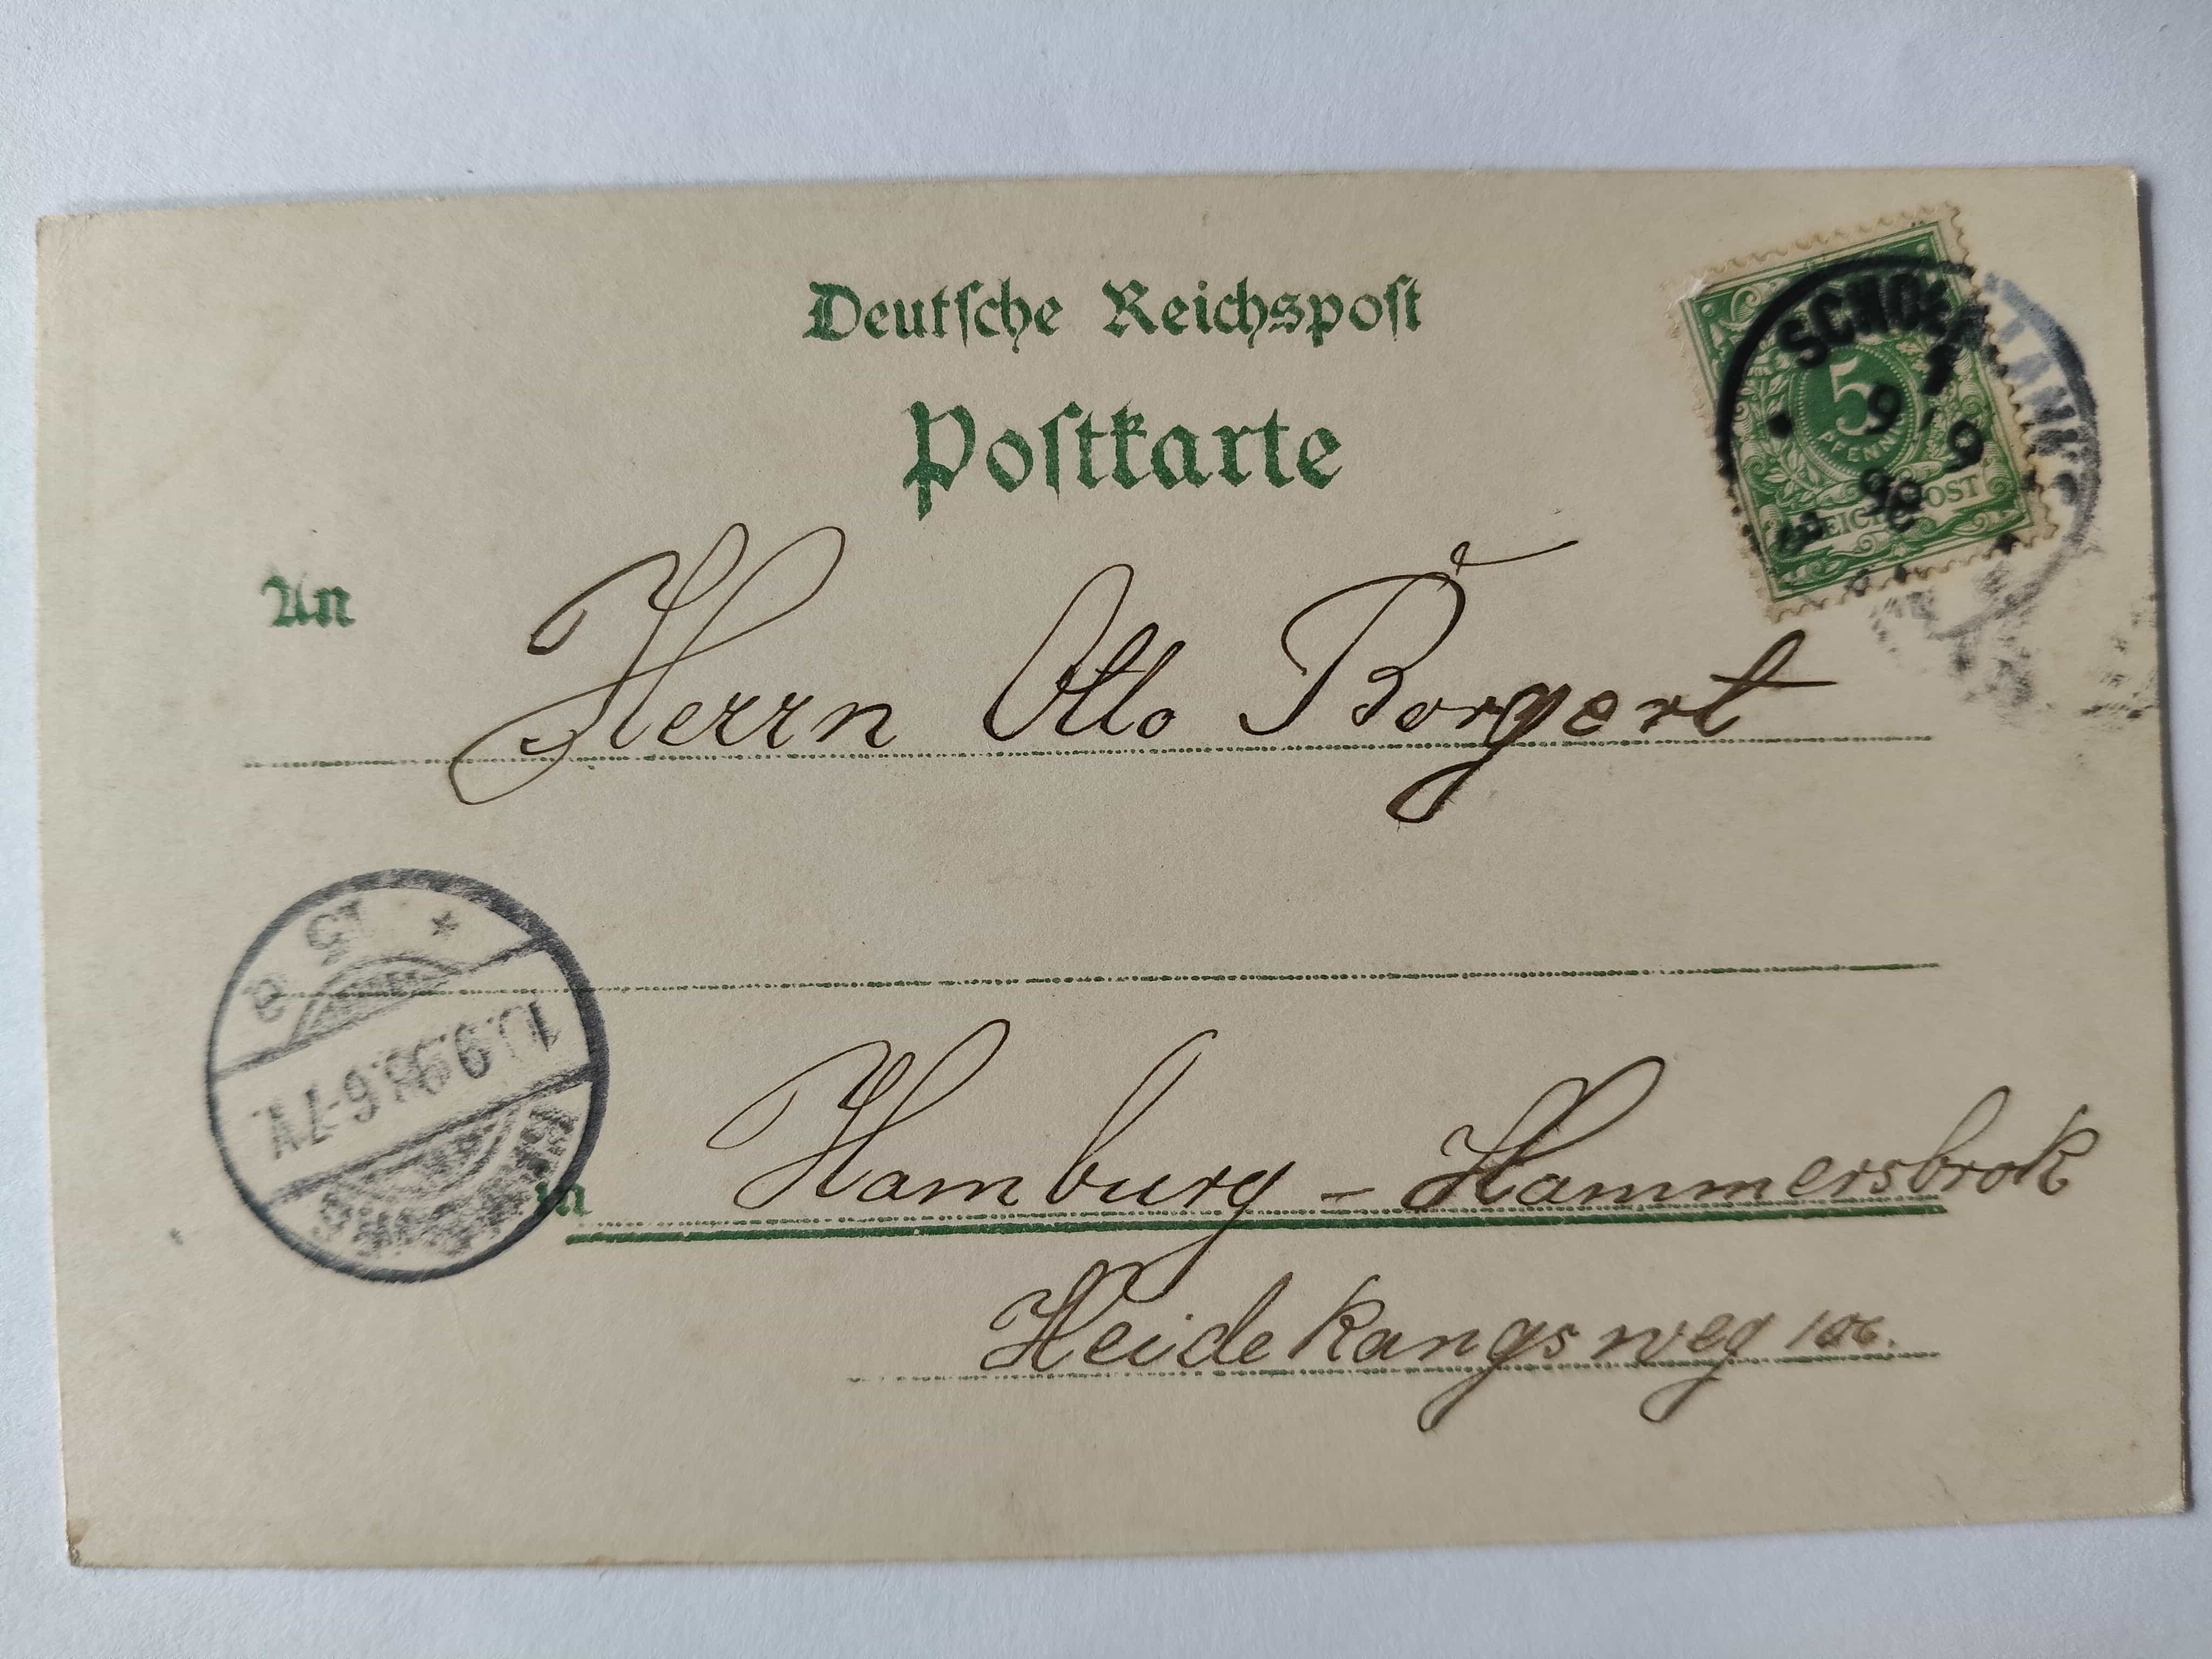 Deutsche Reichspost
Postkarte
5
PFENNIG
REICHSPOST
9 9
98
An
Herrn Otto Borgert
10.9.98. 6-7V.
in
Hamburg - Hammersbrok
Heidekangsweg 106.